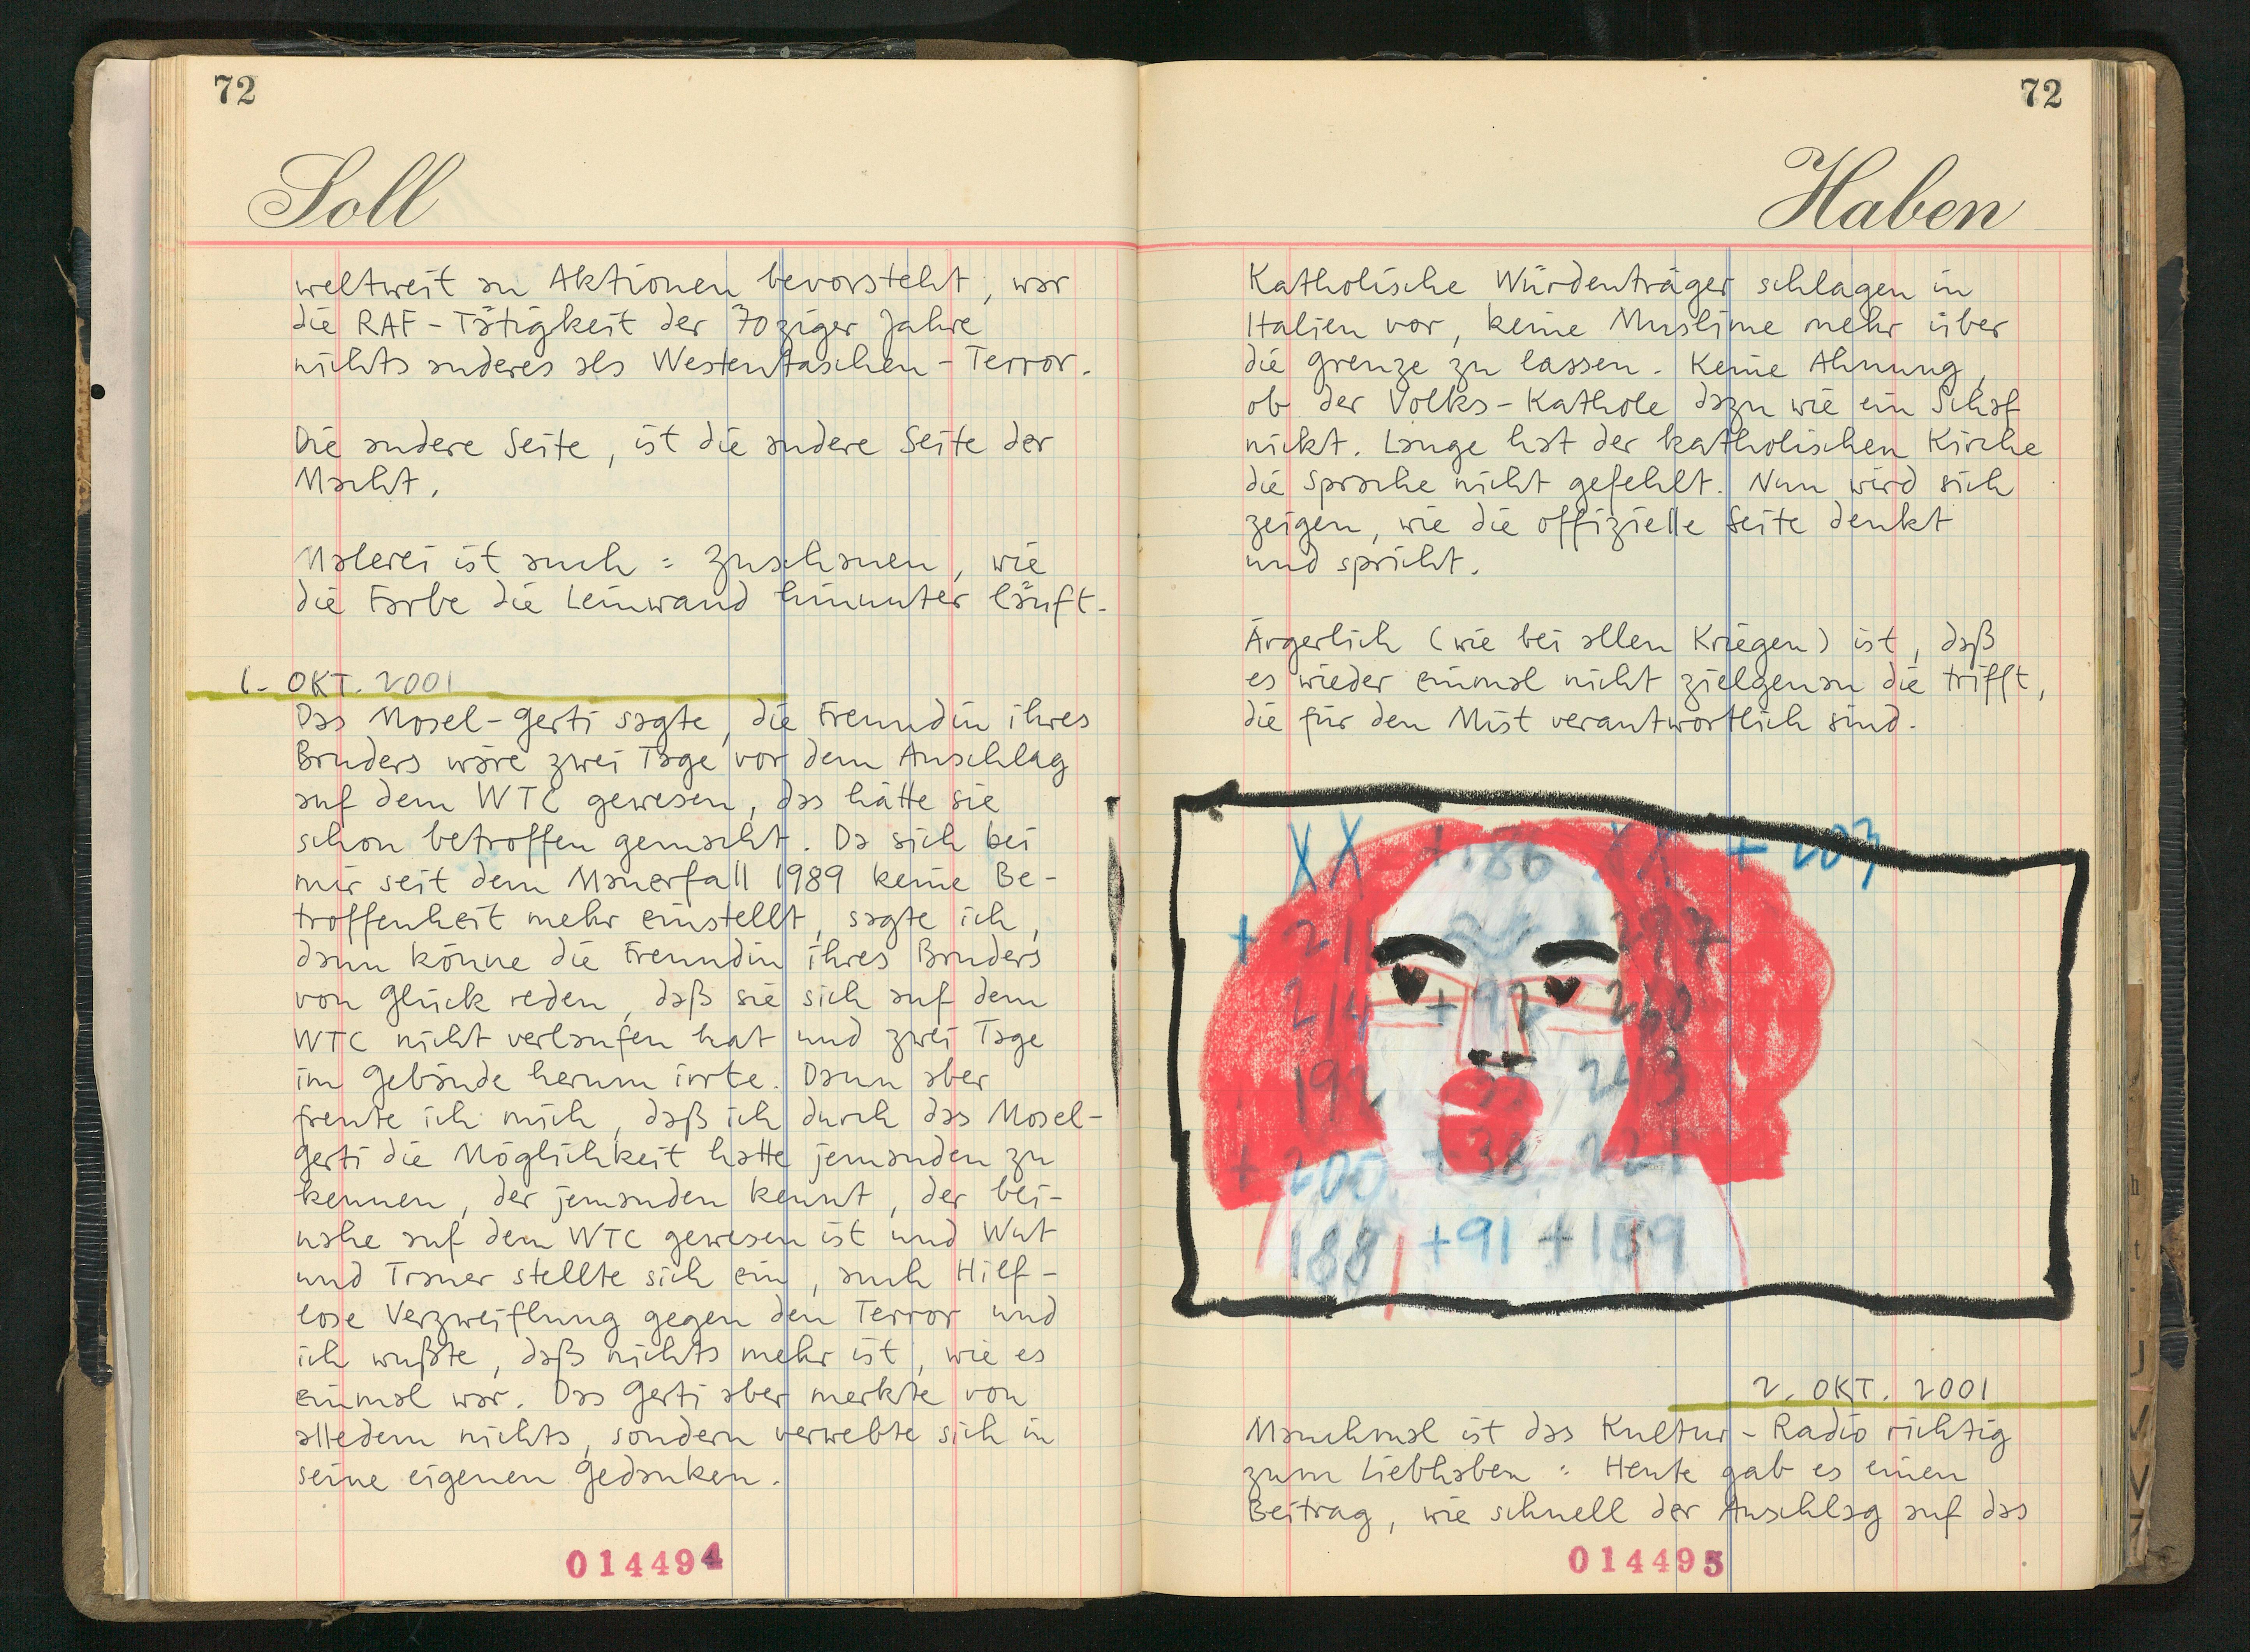 72
Soll
weltweit an Aktionen bevorsteht, war
die RAF-Tätigkeit der 70ziger Jahre
nichts anderes als Westentaschen-Terror.
Die andere Seite, ist die andere Seite der
Macht.
Malerei ist auch: Zuschauen, wie
die Farbe die Leinwand hinunter läuft.
1. OKT. 2001
Das Mosel-Gerti sagte, die Freundin ihres
Bruders wäre zwei Tage vor dem Anschlag
auf dem WTC gewesen, das hätte sie
schon betroffen gemacht. Da sich bei
mir seit dem Mauerfall 1989 keine Be-
troffenheit mehr einstellt, sagte ich,
dann könne die Freundin ihres Bruders
von Glück reden, daß sie sich auf dem
WTC nicht verlaufen hat und zwei Tage
im Gebäude herum irrte. Dann aber
freute ich mich, daß ich durch das Mosel-
Gerti die Möglichkeit hatte jemanden zu
kennen, der jemanden kennt, der bei-
nahe auf dem WTC gewesen ist und Wut
und Trauer stellte sich ein, auch Hilf-
lose Verzweiflung gegen den Terror und
ich wußte, daß nichts mehr ist, wie es
einmal war. Das Gerti aber merkte von
alledem nichts, sondern verwebte sich in
seine eigenen Gedanken.
014494
72
Haben
Katholische Würdenträger schlagen in
Italien vor, keine Muslime mehr über
die Grenze zu lassen. Keine Ahnung,
ob der Volks-Kathole dazu wie ein Schaf
nickt. Lange hat der katholischen Kirche
die Sprache nicht gefehlt. Nun wird sich
zeigen, wie die offizielle Seite denkt
und spricht.
Ärgerlich (wie bei allen Kriegen) ist, daß
es wieder einmal nicht zielgenau die trifft,
die für den Mist verantwortlich sind.
XX +186 XX +203
+ 21 + 297
214 +92 260
192 35 243
+ 200 +38 221
188 +91 +189
2. OKT. 2001
Manchmal ist das Kultur-Radio richtig
zum Liebhaben: Heute gab es einen
Beitrag, wie schnell der Anschlag auf das
014495